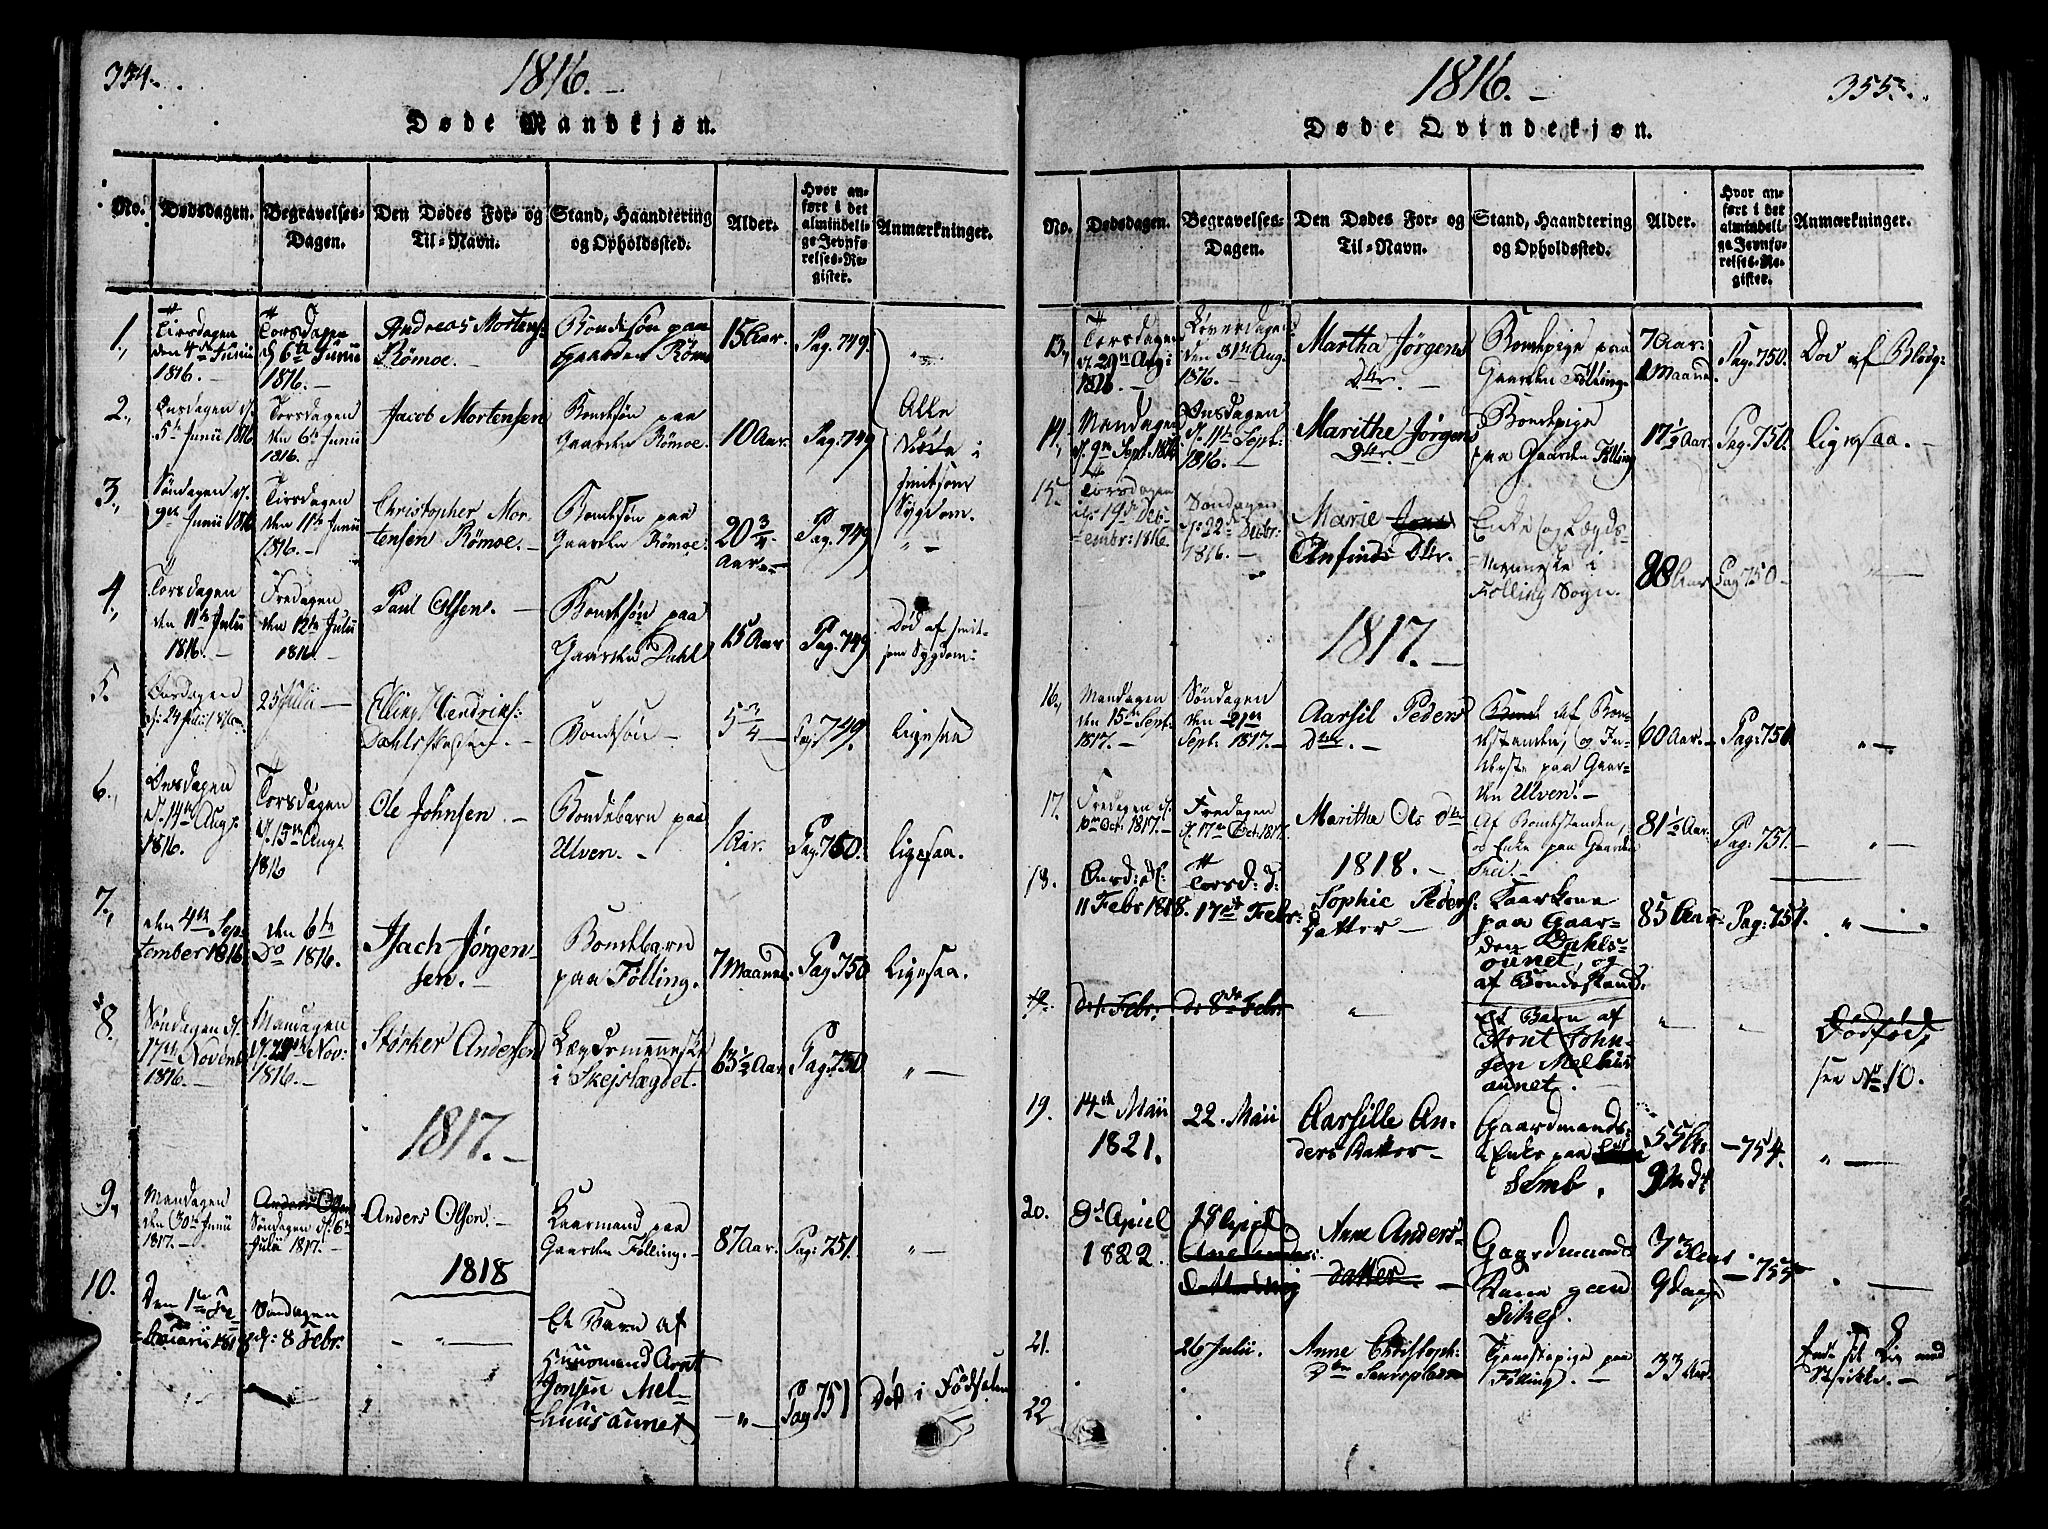 354.
1816.
Døde Mandkjøn.
No.
Dødsdagen.
Begravelses-
Dagen.
Den Dødes For- og
Til-Navn.
Stand, Haandtering
og Opholdssted.
Alder.
Hvor an-
ført i det
almindeli-
ge Jevnfø-
relses-Re-
gister.
Anmærkninger.
1.
Tirsdagen
den 4de Junii
1816.
Torsdagen
d. 6te Junii
1816.
Andreas Mortens:
Römoe.
Bondesøn paa
Gaarden Römoe
15 Aar.
Pag. 749.
2.
Onsdagen d.
5te Junii 1816
Torsdagen
den 6te Junii
1816.
Jacob Mortensen
Bondesøn paa
Gaarden Römoe.
10 Aar.
Pag. 749
Alle
Døde i
smitsom
Sygdom.
3.
Søndagen d.
9de Junii 1816
Tirsdagen
den 11te Junii
1816.
Christopher Mor-
tensen Römoe.
Bondesøn paa
Gaarden Römoe.
20 3/4
Aar.
Pag. 749
4.
Torsdagen
den 11te Julii
1816.
Fredagen
den 12te Julii
1816.
Paul Olsen.
Bondesøn paa
Gaarden Dahl
15 Aar
Pag. 749
Død af smit-
som Sygdom:
5.
Onsdagen
d: 24 Julii 1816
25 Julii
Elling Hendriks:
Bondesøn
5 3/4
Pag 749.
Ligesaa
6.
Onsdagen
d. 14de Aug:
1816.
Torsdagen
d. 15de Aug:
1816
Ole Johnsen.
Bondebarn paa
Ulven.
1 Aar.
Pag. 750.
ligesaa.
7.
den 4de Sep-
tember 1816
den 6te
Do 1816.
Isach Jørgen-
sen.
Bondebarn
paa Følling.
7 Maaned.
Pag 750
Ligesaa.
8.
Søndagen d.
17de Novemb:
1816.
Mandagen
Nov:
1816.
Størker Andersen
Lægdsmenneske
i Skejslægdet.
63 1/2 Aar
Pag. 750
1817.
9.
Mandagen
den 30te Junii
1817.
Anders Olsen
Søndagen d. 6te
Julii 1817.
Anders Olsen.
Kaarmand paa
Gaarden Følling.
87 Aar.
Pag: 751.
1818
10.
Den 1ste Fe-
bruarii 1818
Søndagen
d: 8 Febr.
Et Barn af
Huusmand Arnt
Jonsen Mel-
huusaunet
Pag 751
Død i Fødselen
1816.
355.
Døde Qvindekjøn.
No.
Dødsdagen.
Begravelses-
Dagen.
Den Dødes For- og
Til-Navn.
Stand, Haandtering
og Opholdssted.
Alder.
Hvor an-
ført i det
almindeli-
ge Jevnfø-
relses-Re-
gister.
Anmærkninger.
13.
Torsdagen
d. 29de Aug:
1816.
Løverdagen
den 31te Aug.
1816.
Martha Jørgens
Dtr.
Bondepige paa
Gaarden Følling.
7 Aar.
Maaned.
Pag. 750.
Død af Blodg:
14.
Mandagen
d. 9de Sept. 1816
Onsdagen
d. 11te Sept:
1816.
Marithe Jørgens
Dtr.
Bondepige
paa Gaarden Følling
17 1/2 Aar
Pag: 750.
ligesaa.
15.
Torsdagen
d: 19de Dec-
embr: 1816.
Søndagen
d: 22de Decbr:
1816.
Marie Jons
Anfinds Dtr.
Enke og Lægds-
Menneske i
Følling Sogn.
88 Aar
Pag 750
1817.
16.
Mandagen
den 15de Sept:
1817.
Søndagen
den 21de
Sept. 1817.
Aarsil Peders
Dtr.
af Bon-
destanden, og In-
derste paa Gaar-
den Ulven.
60 Aar.
Pag. 750
17.
Fredagen d.
10de Oct: 1817.
Fredagen
d. 17de Oct. 1817.
Marithe Ols Dtr
Af Bondestanden,
og Enke paa Gaarden
81 1/2 Aar.
Pag: 751.
1818.
18.
Onsd: d:
11 Febr 1818.
Torsd: d:
17de Febr:
Sophie Peders:
Datter
Kaarkone
paa Gaar-
den Dahls-
ounet, og
af Bondestand.
85 Aar.
Pag: 751.
19.
d: 1. Febr.
d: 8de Febr
Et Barn af
Arnt John-
sen Melhus
aunet.
Dødfød,
see No 10.
19.
14de Maii
1821.
22. Maii
Aarsille An-
dersdatter
Gaardmands-
Enke paa
Semb.
55 Aar
9 Mdr
754.
20.
9de April
1822.
18 April
Anne Anders-
datter
Gaardmands
Sikes
73 Aar
9 Dage
755
21.
26 Julii.
Anne Christoph:
Dtr
Tjenestepige paa
Følling.
33 Aar.
22